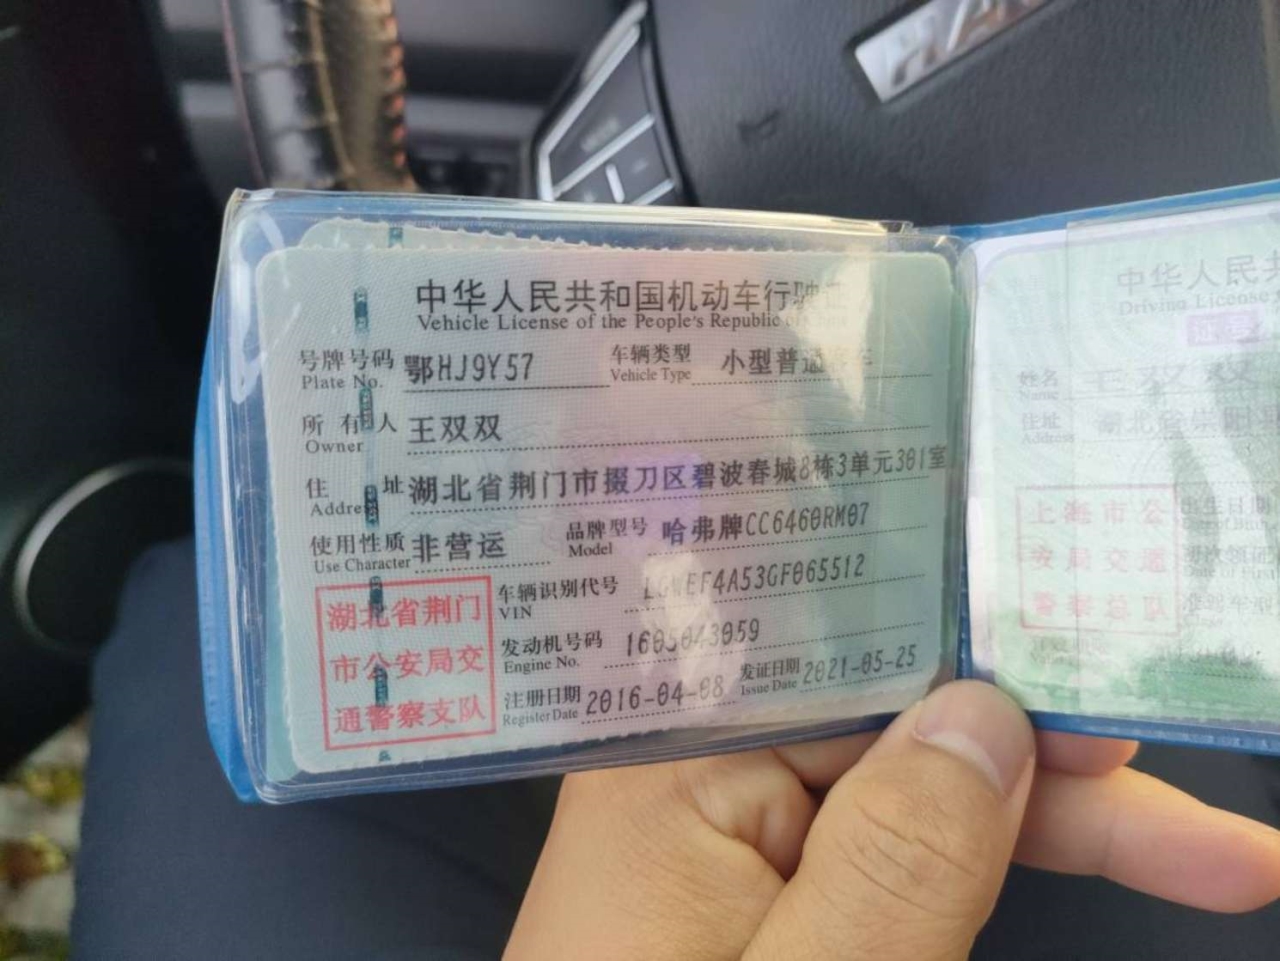 中华人民共和国机动车行驶证
Vehicle License of the People's Republic of China
号牌号码 鄂HJ9Y57 车辆类型 小型普通客车
Plate No. Vehicle Type
所有人 王双双
Owner
住址 湖北省荆门市掇刀区碧波春城8栋3单元301室
Address
使用性质 非营运 品牌型号 哈弗牌CC6460RM07
Use Character Model
车辆识别代号 LGWEF4A53GF065512
VIN
发动机号码 1605043059
Engine No.
注册日期 2016-04-08 发证日期 2021-05-25
Register Date Issue Date
湖北省荆门
市公安局交
通警察支队
中华人民共
Driving License
证号
姓名 王双双
Name
住址 湖北省崇阳县
Address
上海市公
安局交通
警察总队
出生日期